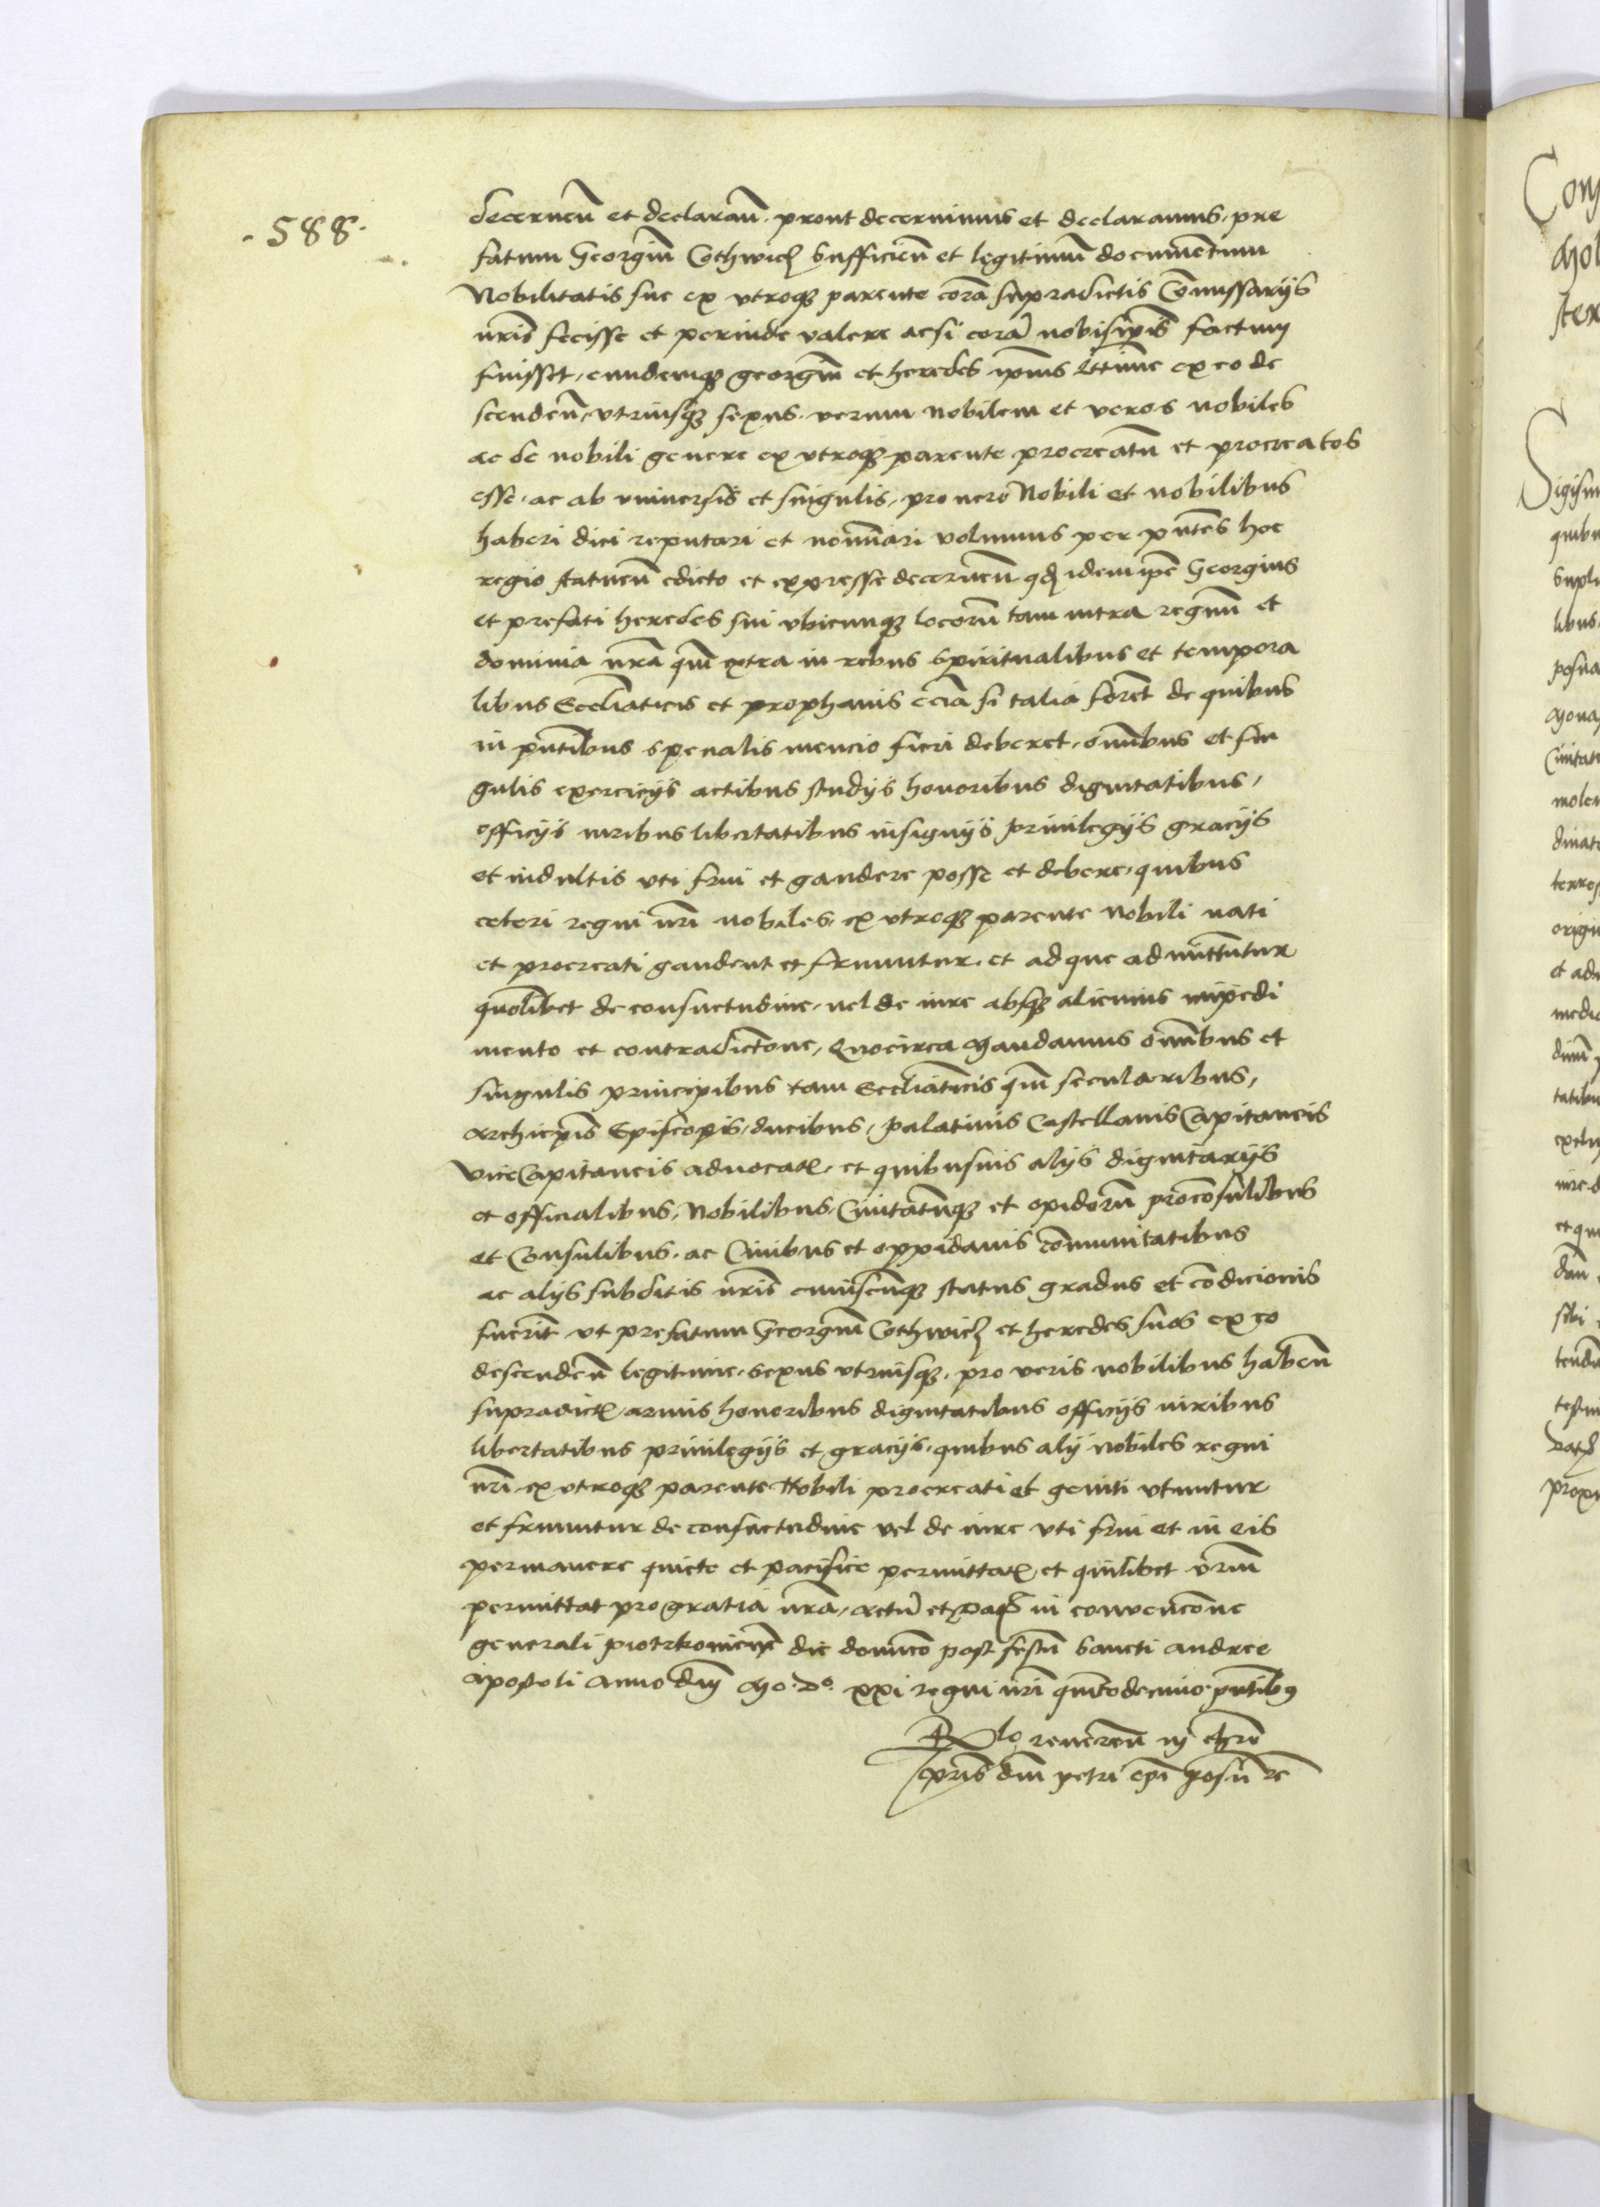 . 588 .
decernen̄ et declaran̄. prout decernimus et declaramus. pre
fatum Georgiū Cothwicȝ sufficien̄ et legitimū documentum
Nobilitatis sue ex vtroqȝ parente corā supradictis Com̄issarijs
nr̄is fecisse et perinde valere acsi corā nobisip̄is factum
fuisset, eundemqȝ georgiū et heredes ip̄ius l̄ttime ex eo de
scenden̄, vtriusqȝ sexus. verum nobilem et veros nobiles
ac de nobili genere ex vtroqȝ parente procreatū et procreatos
esse. ac ab vniuersis et singulis, pro uero Nobili et nobilibus
haberi dici reputari et nominari volumus per pn̄tes hoc
regio statuen̄ edicto et expresse decernen̄ qđ idem ip̄e Georgius
et prefati heredes sui vbicunqȝ locorū tam intra regnū et
dominia nr̄a qm̄ extra in rebus spiritualibus et tempora
libus Eccl̄iaticis et prophanis eciā si talia foret de quibus
in pn̄tibus specialis mencio fieri deberet, om̄ibus et sin
gulis exercicijs actibus studijs honoribus dignitatibus,
officijs iuribus libertatibus insignijs priuilegijs gracijs
et indultis vti frui et gaudere posse et debere, quibus
ceteri regni nr̄i nobiles, ex vtroqȝ parente nobili nati
et procreati gaudent et fruuntur, et ad que admittūtur
quolibet de consuetudine, uel de iure absqȝ alicuius impedi
mento et contradictione, Quocirca Mandamus om̄ibus et
singulis principibus tam Eccl̄iaticis qm̄ secularibus,
Archiep̄is Episcopis, ducibus, palatinis Castellanis Capitaneis
ViceCapitaneis aduocatȝ, et quibusuis alijs dignitarijs
et officialibus, Nobilibus, Ciuitatūqȝ et opidorū procōsulibus
et Consulibus, ac Ciuibus et oppidanis com̄unitatibus
ac alijs subditis nr̄is cuiuscūqȝ status gradus et cōdicionis
fuerīt vt prefatum Georgiū Cothwicȝ et heredes suos ex eo
descenden̄ legitime, sexus vtriusqȝ, pro veris nobilibus haben̄
supradictȝ armis honoribus dignitatibus officijs iuribus
libertatibus priuilegijs et gracijs, quibus alij nobiles regni
nr̄i, ex vtroqȝ parente Nobili procreati et geniti vtuntur
et fruuntur de consuetudine vel de iure vti frui et in eis
permanere quiete et pacifice permittatȝ, et quilibet vr̄m
permittat pro gratia nr̄a, Actū et Datȝ in conuencōne
generali piotrkouien̄ die dominico post festū Sancti Andree
Apostoli Anno dnj Mo. Do. xxi regni nr̄i quintodecimo. pn̄tibus
reueren̄ in chr̄o
pr̄is dnī petri ep̄i